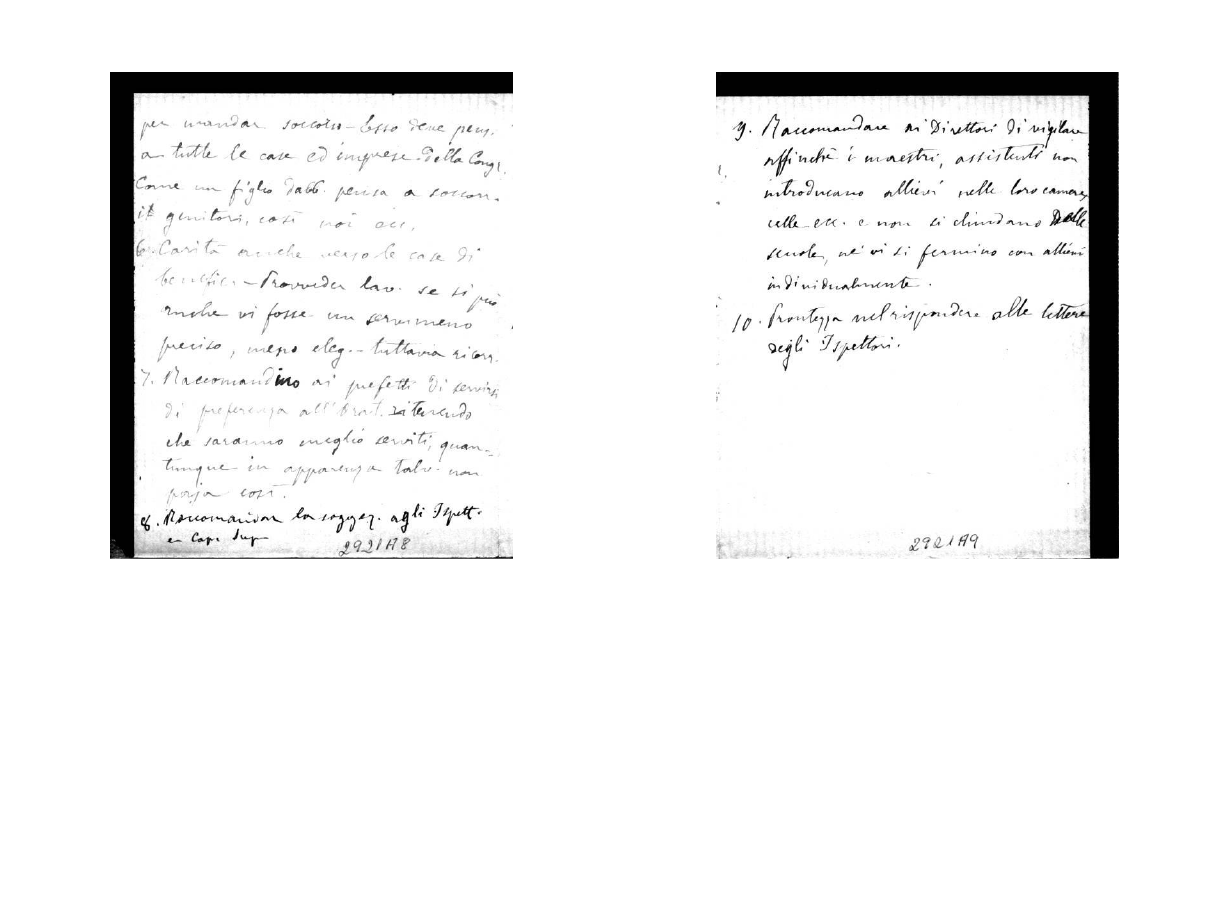 per mandar soccorso - Esso deve pens.
a tutte le case ed imprese della Cong.
Come un figlio dabb. pensa a soccorr.
i genitori, così noi ecc.
6. Carità anche verso le case di
benefici - Provveder lav. se si può
anche vi fosse un servi meno
preciso, meno eleg. - tuttavia ricorr.
7. Raccomandino ai prefetti di servirsi
di preferenza all' Orat. ritenendo
che saranno meglio serviti, quan-
tunque in apparenza talv. non
paja così.
8. Raccomandar la soggez. agli Ispett.
Cap. Sup
2921A8
9. Raccomandare ai Direttori di vigilare
affinchè i maestri, assistenti non
introducano allievi nelle loro camere,
celle ecc. e non si chiudano nelle
scuole, nè vi si fermino con allievi
individualmente.
10. Prontezza nel rispondere alle lettere
degli Ispettori.
2921A9